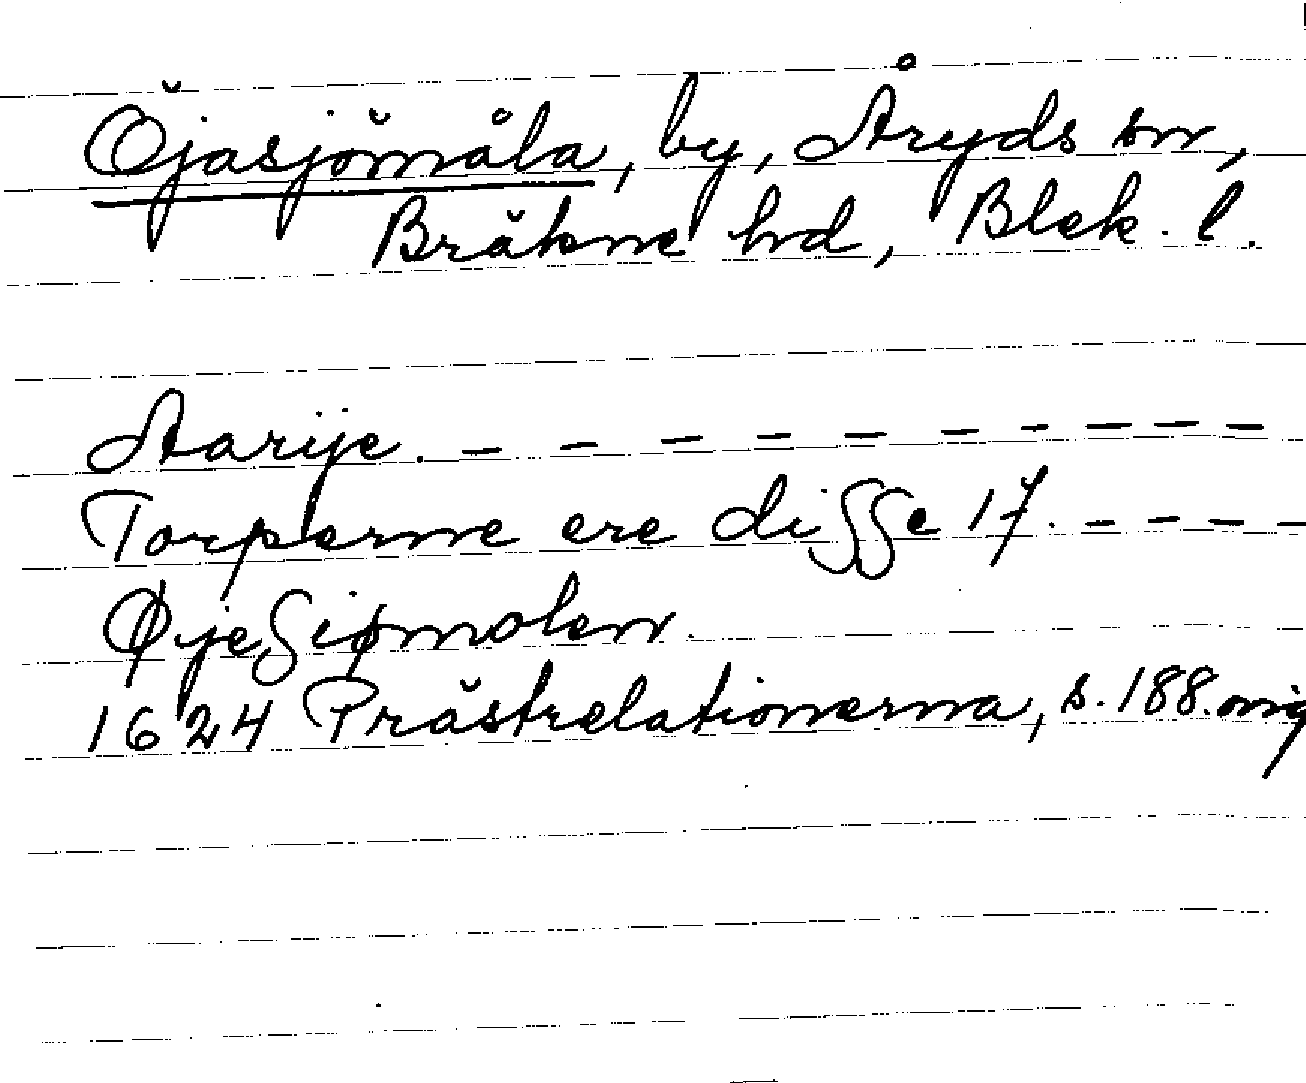 Öjasjömåla, by, Åryds sn,
Bräkne hd, Blek. l.
Aarije. – – – – – – – – –
Torperne ere disse 17. – – – –
Øjesiømolen.
1624 Prästrelationerna, s. 188. orig